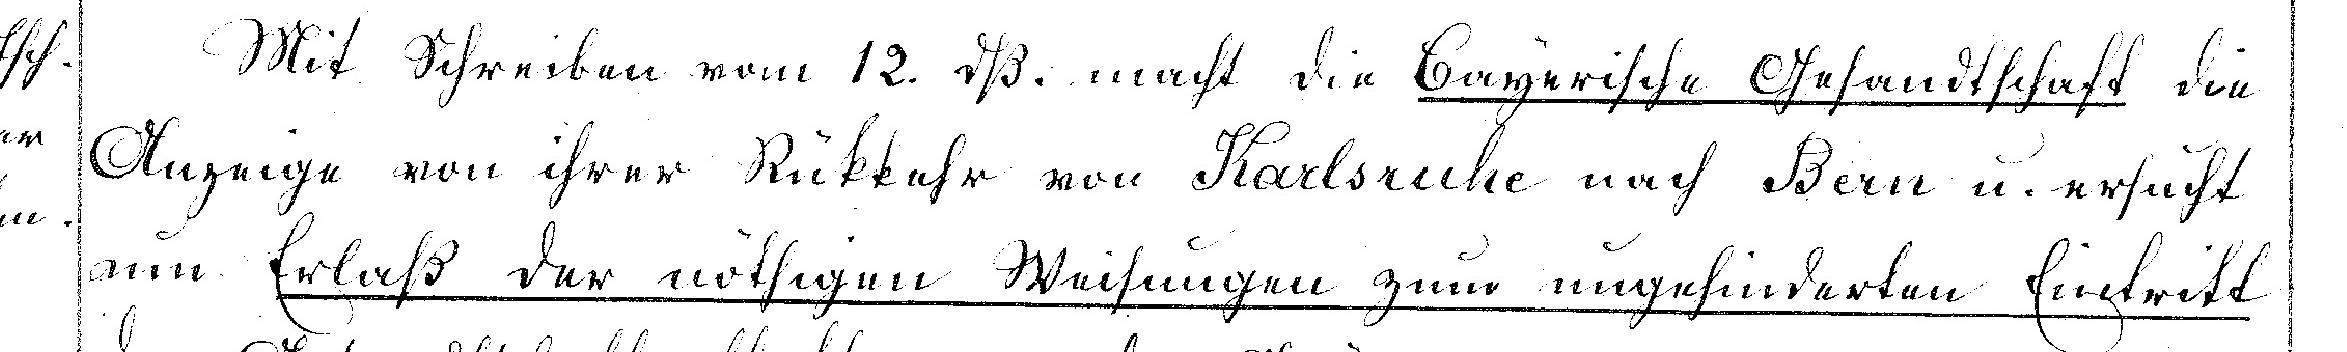 Mit Schreiben vom 12. dß. macht die Bayerische Gesandtschaft die
Anzeige von ihrer Rükkehr von Karlsruhe nach Bern u. ersucht
um Erlaß der nöthigen Weisungen zum ungehinderten Eintritt